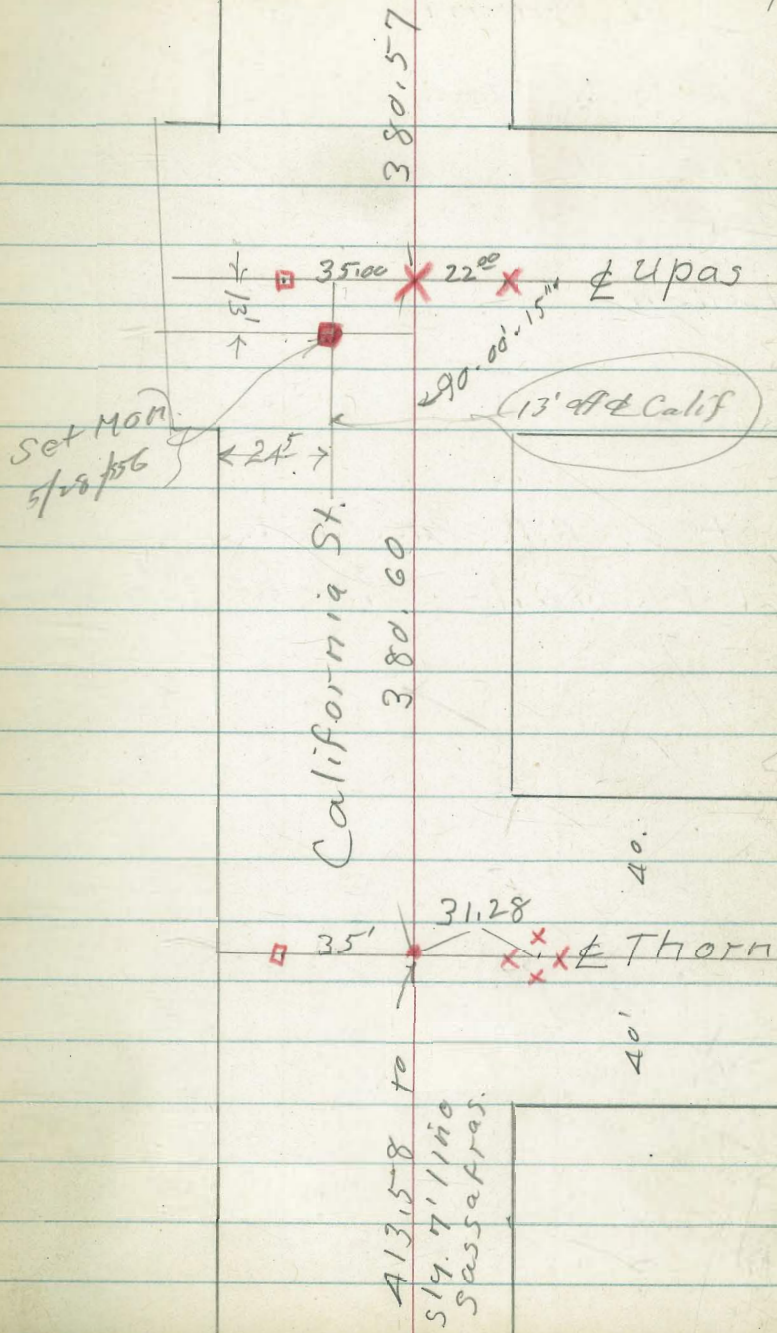 380.57
35.00
22⁰⁰
℄ Upas
13'
90°-00'-15"
13' off ℄ Calif
Set Mon
5/28/56
24⁵
California St.
380.60
40.
31.28
35'
℄ Thorn
40'
413.58 to
Sly. 7' line
Sassafras.